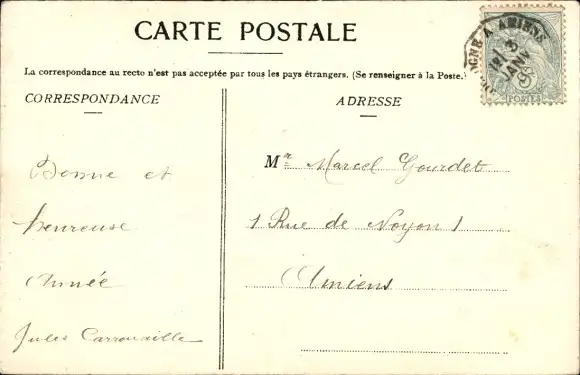 CARTE POSTALE
La correspondance au recto n'est pas acceptée par tous les pays étrangers. (Se renseigner à la Poste.)
CORRESPONDANCE
ADRESSE
Bonne et
heureuse
Année
Jules
Mr Marcel Gourdet
1 Rue de Noyon 1
Amiens
A AMIENS
3
JANV
POSTES